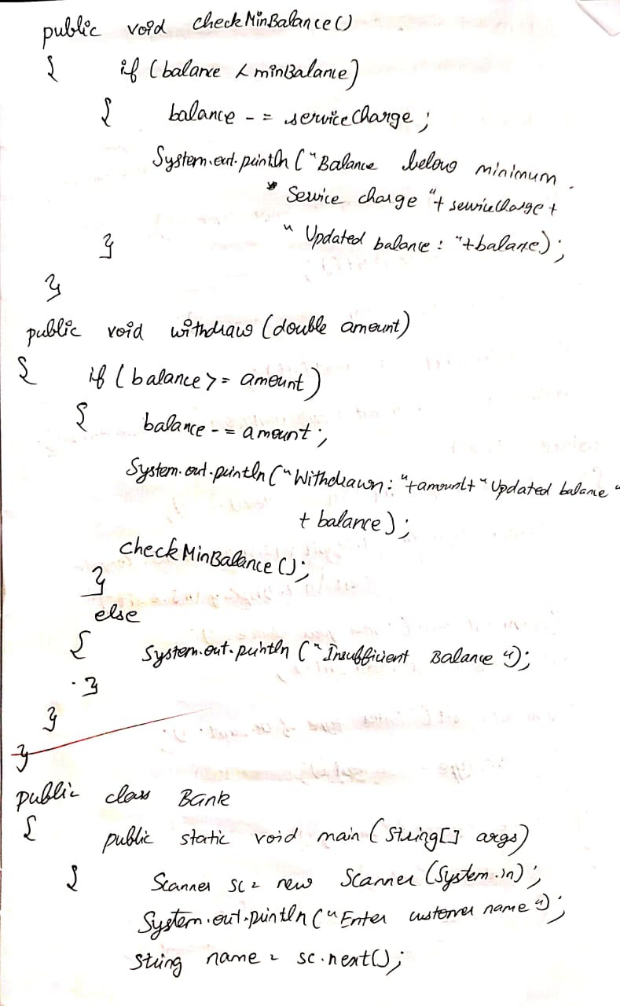 public void checkMinBalance()
{ if (balance < minBalance)
{ balance - = serviceCharge;
System.out.println ("Balance below minimum.
" Service charge "+ serviceCharge +
" Updated balance : "+balance);
}
}
public void withdraw (double amount)
{ if (balance >= amount)
{ balance - = amount;
System.out.println ("Withdrawn: "+amount+" Updated balance "
+ balance);
checkMinBalance ();
}
else
{ System.out.println ("Insufficient Balance ");
}
}
}
public class Bank
{ public static void main (String[] args)
{ Scanner sc = new Scanner (System.in);
System.out.println ("Enter customer name ");
String name = sc.next();